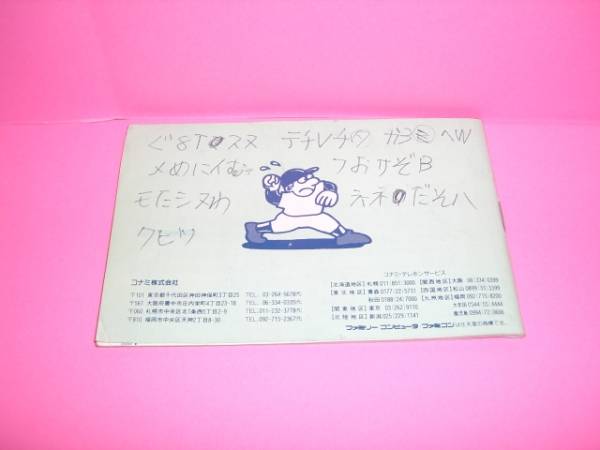 ぐ8T0スヌ テチレチタ かろミへW
メめにイむテ フおサぞB
モたシヌわ ネネ0だそハ
クビツ
コナミ株式会社
〒101 東京都千代田区神田神保町3丁目25 TEL.03-264-5678代
〒561 大阪府豊中市庄内栄町4丁目23-18 TEL.06-334-0335代
〒060 札幌市中央区北1条西5丁目2-9 TEL.011-232-3778代
〒810 福岡市中央区天神2丁目8-30 TEL.092-715-2367代
コナミ・テレホンサービス
[北海道地区] 札幌 011-851-3000 [関西地区] 大阪 06-334-0399
[東北地区] 青森 0177-22-5731 [四国地区] 松山 0899-33-3399
秋田 0188-24-7000 [九州地区] 福岡 092-715-8200
[関東地区] 東京 03-262-9110 大分 0975
[北陸地区] 新潟 025-229-1141
ファミリーコンピュータ ファミコンは任天堂の商標です。